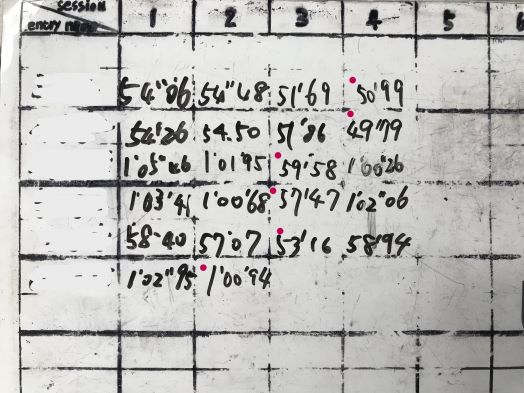 session 1 2 3 4 5 6
entry name
54"06 54"48 51'69 50'99
54'26 54.50 51'86 49"79
1'05"46 1'01'95 59'58 1'00"26
1'03'41 1'00'68 57'47 1'02"06
58-40 57'07 53'16 58'94
1'02"95 1'00'94